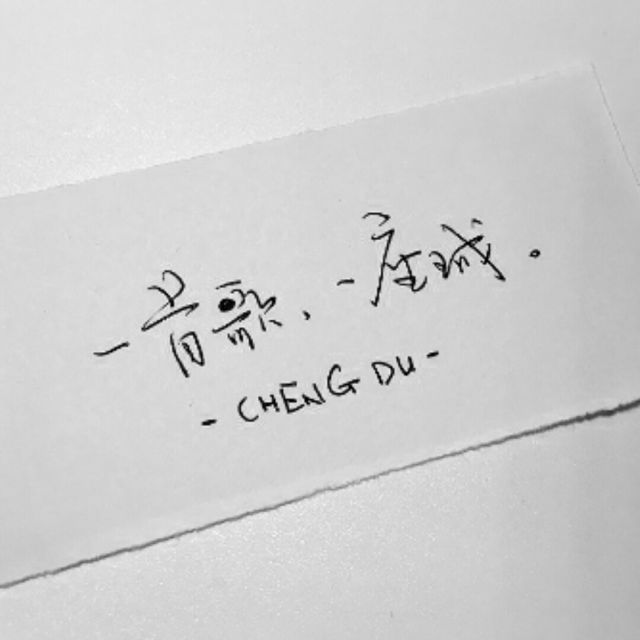 一首歌、一座城。
- CHENG DU -